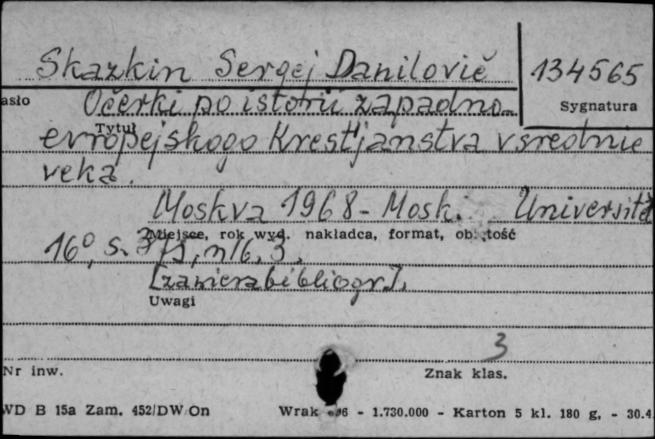 Skazkin Sergej Danilovič 134565
asło Sygnatura
Očerki po istorii zapadno-
Tytuł
evropejskogo Krestjanstva v srednie
veka.
Moskva 1968 - Mosk. Universitet
Miejsce, rok wyd. nakładca, format, objętość
16°, s.
[zawiera bibliogr.].
Uwagi
3
Nr inw. Znak klas.
WD B 15a Zam. 452/DW/On Wrak - 1.730.000 - Karton 5 kl. 180 g. - 30.4.